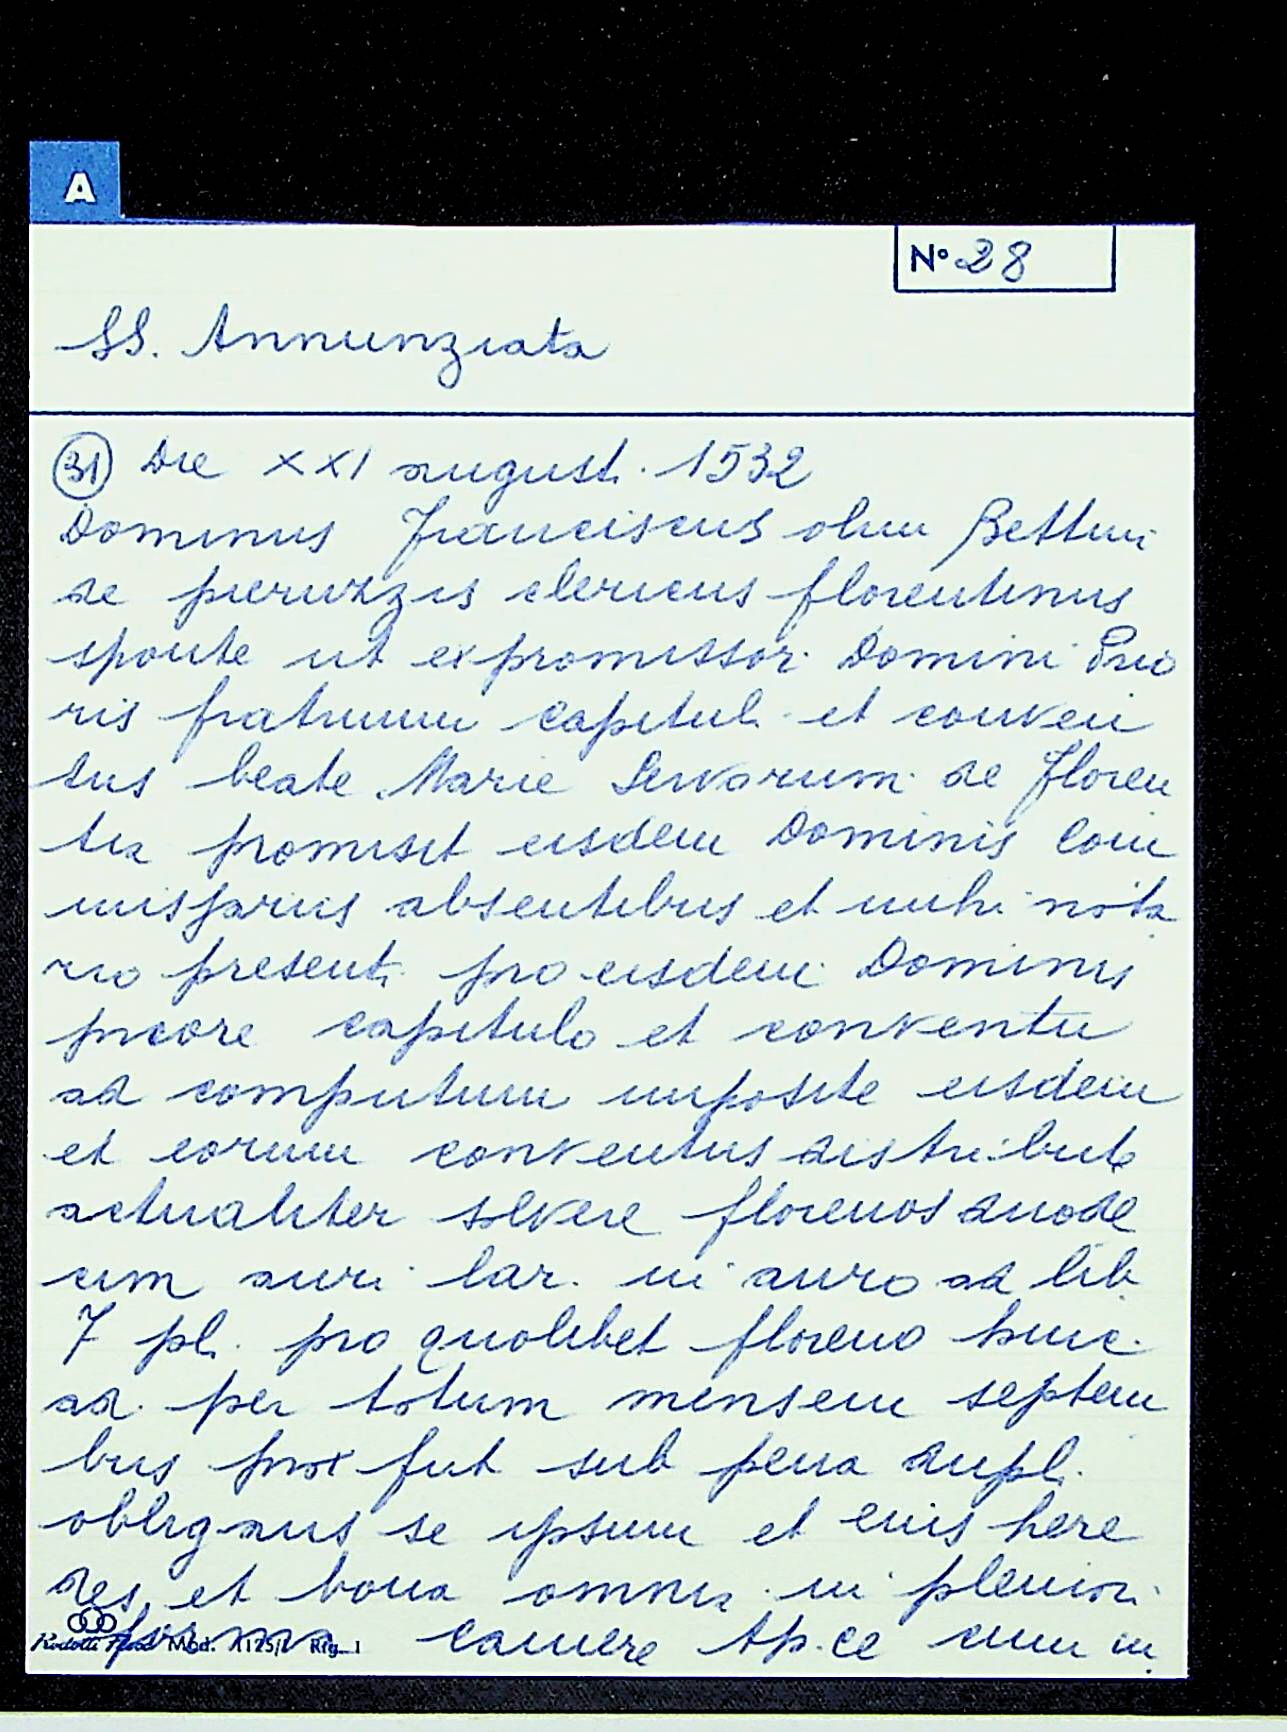 A
N° 28
SS. Annunziata
31 Die XXI august. 1532
Dominus Franciscus olim Bettini
de pieruzzis clericus florentinus
sponte ut expromissor Domini Prio
ris fratrum capituli et conven
tus beate Marie Servorum de Floren
tia promisit eisdem Dominis Com
missariis absentibus et mihi nota
rio present. pro eisdem Dominis
priore capitulo et conventu
ad computum imposite eisdem
et eorum conventus distribute
actualiter solvere florenos duode
cim auri lar. in auro ad lib.
7 pl. pro quolibet floreno hinc
ad per totum mensem septem
bris prox fut sub pena dupl.
obligans se ipsum et eius here
des et bona omnia in pleniori
forma Camere Ap.ce cum in
Mod. A125/1 Rig. 1